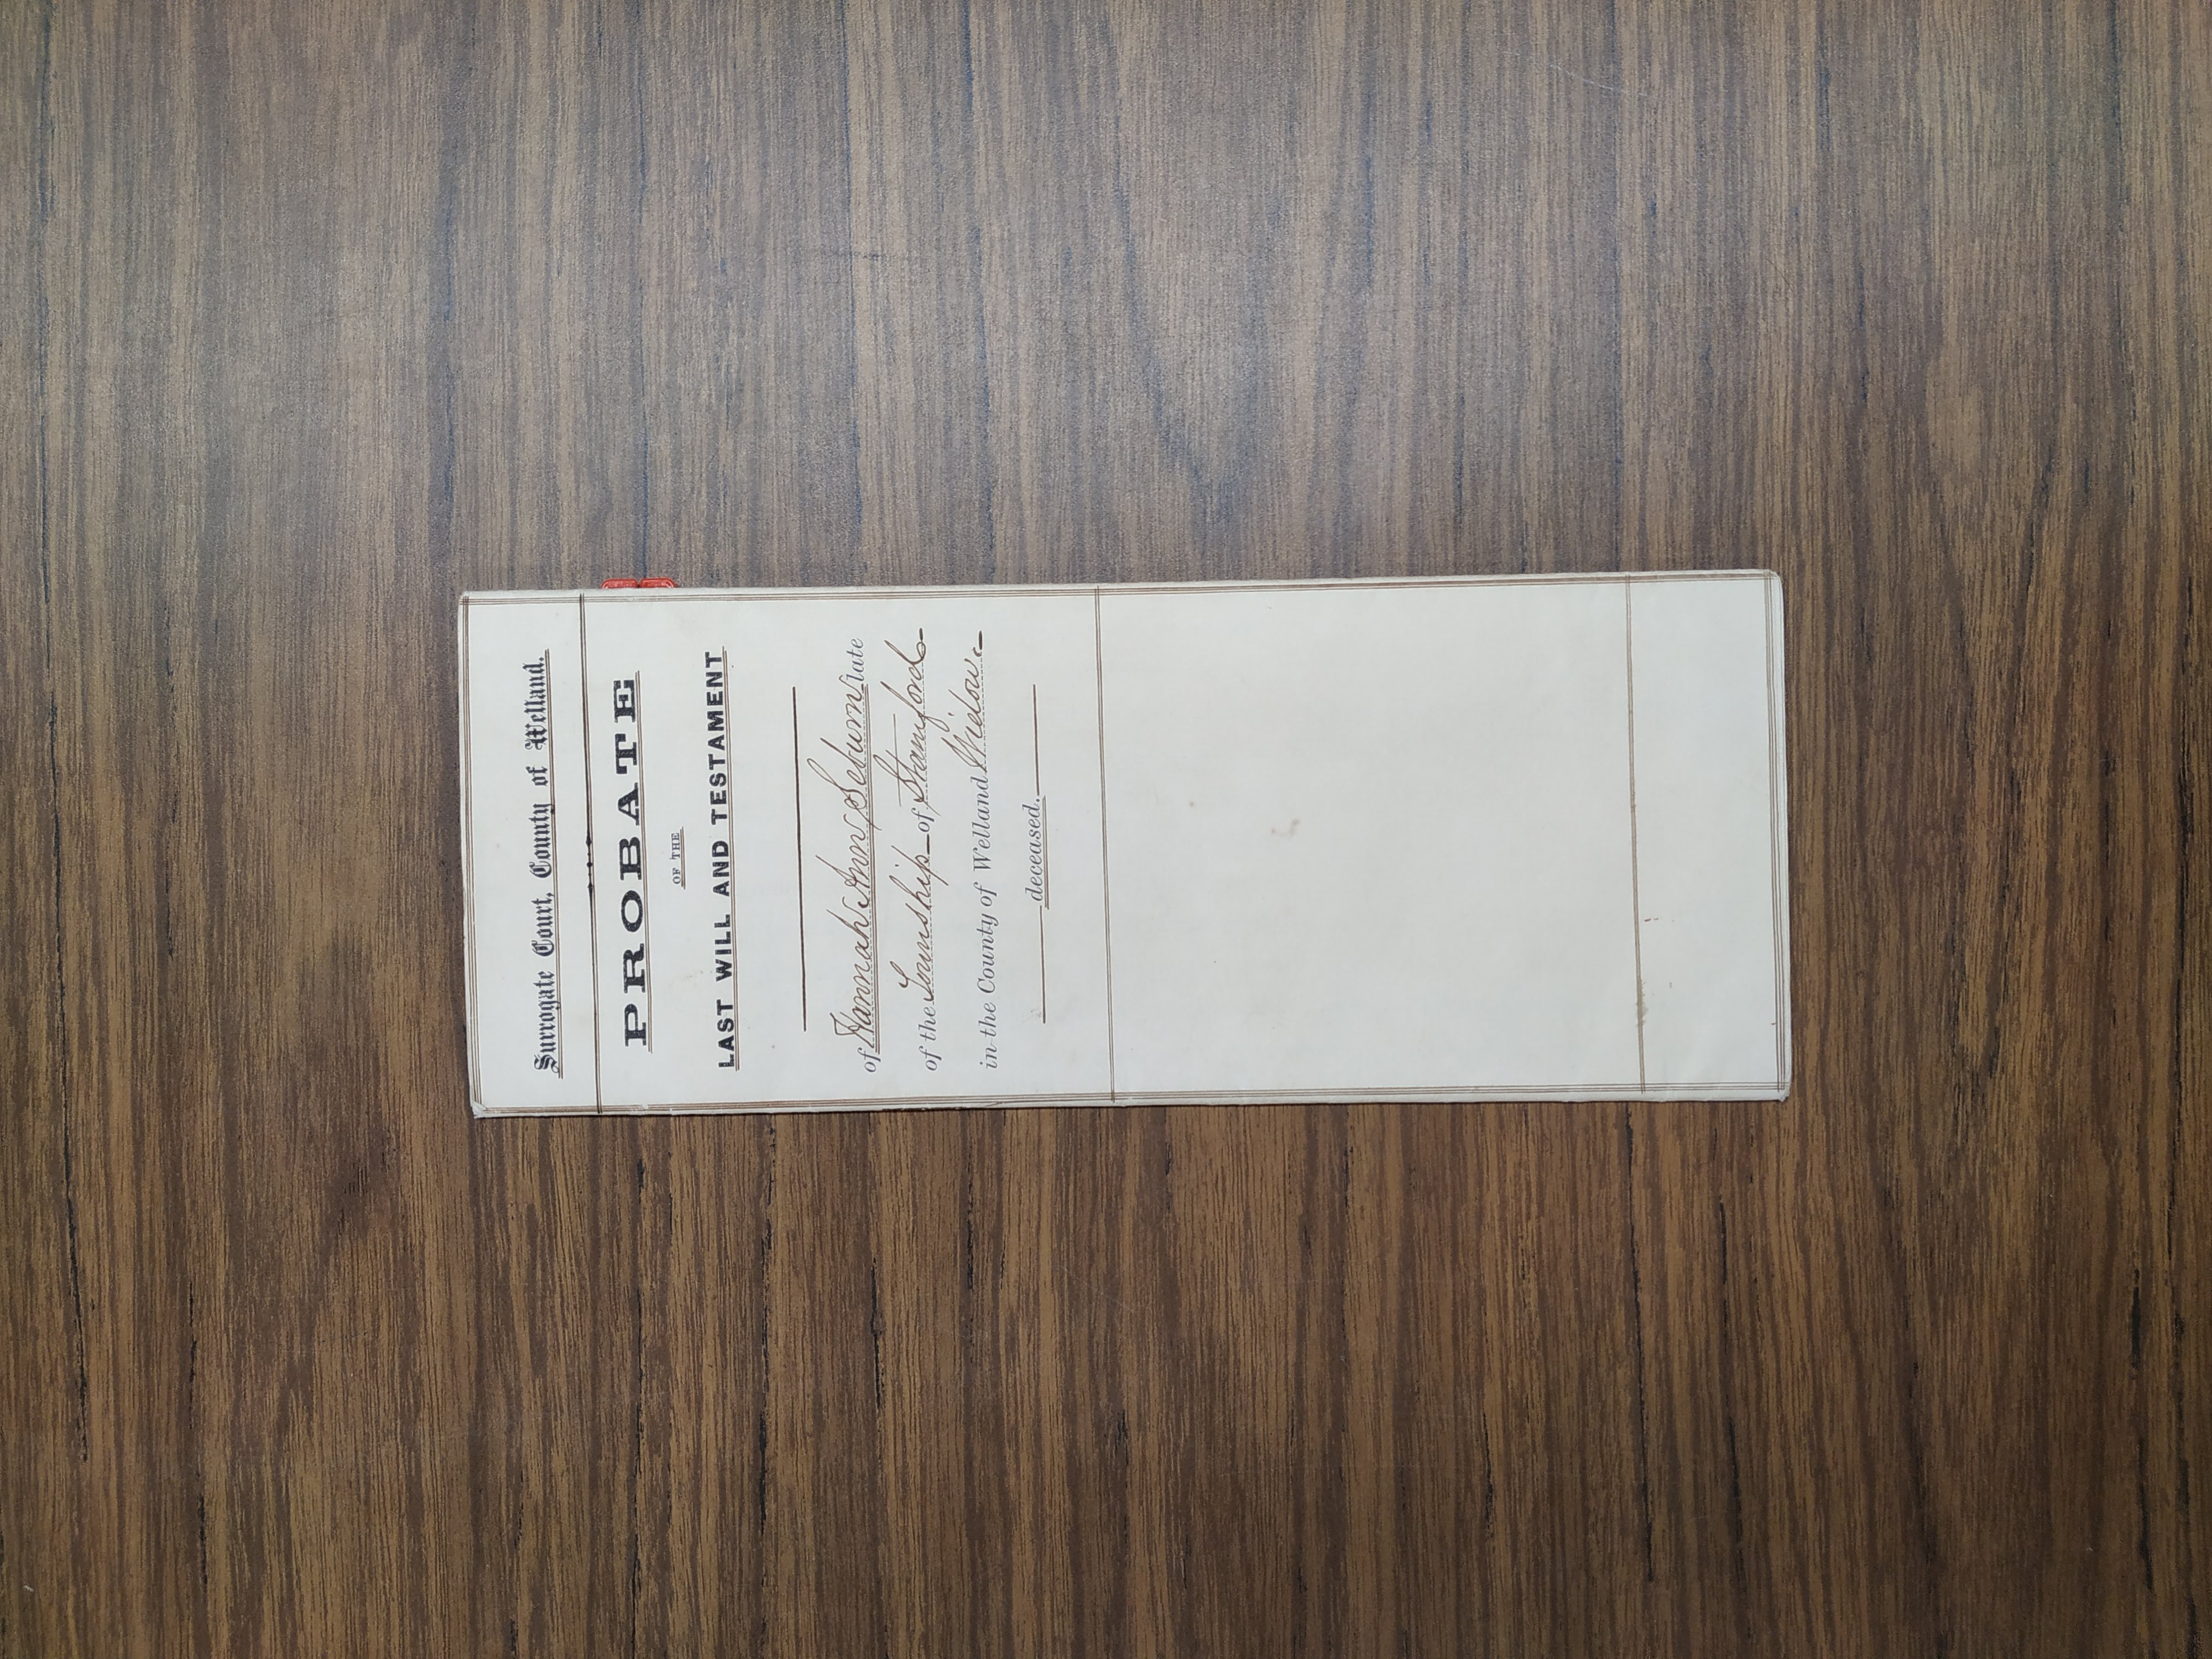 Surrogate Court, County of Welland.
PROBATE
OF THE
LAST WILL AND TESTAMENT
of Hannah Ann Seburn late
of the Township of Stamford
in the County of Welland Widow.
deceased.